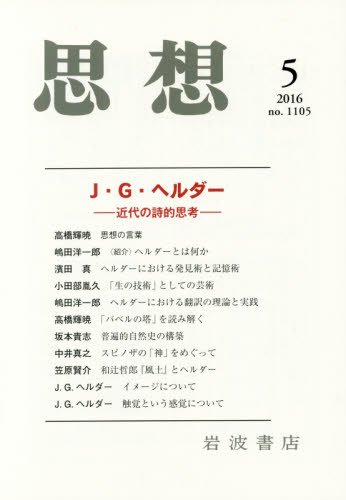 思想
5
2016
no. 1105
J・G・ヘルダー
──近代の詩的思考──
高橋輝暁 思想の言葉
嶋田洋一郎 〈紹介〉ヘルダーとは何か
濱田 真 ヘルダーにおける発見術と記憶術
小田部胤久 「生の技術」としての芸術
嶋田洋一郎 ヘルダーにおける翻訳の理論と実践
高橋輝暁 「バベルの塔」を読み解く
坂本貴志 普遍的自然史の構築
中井真之 スピノザの「神」をめぐって
笠原賢介 和辻哲郎『風土』とヘルダー
J. G. ヘルダー イメージについて
J. G. ヘルダー 触覚という感覚について
岩波書店